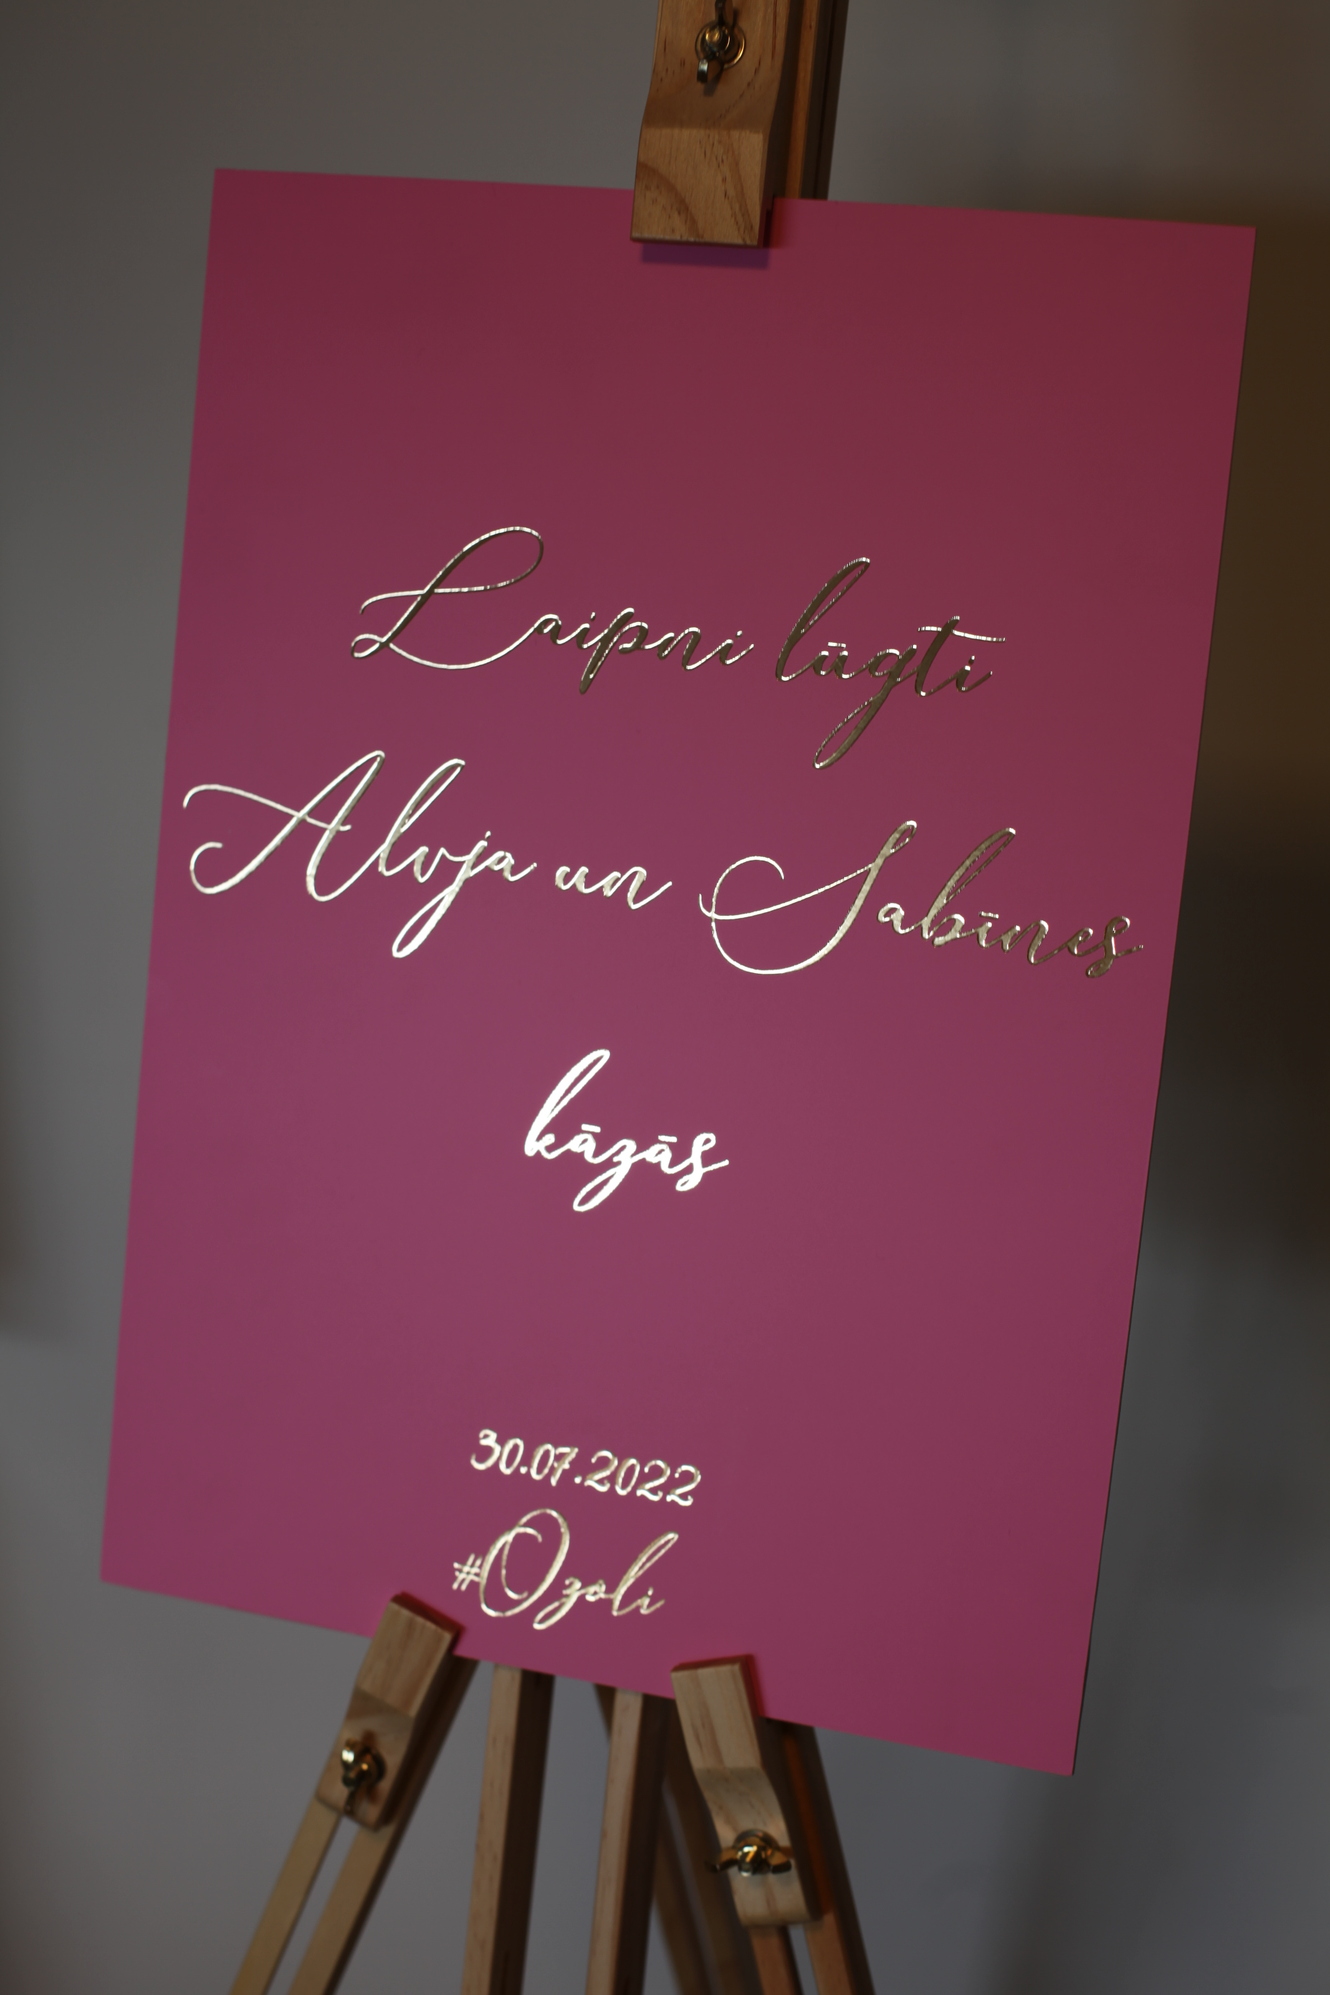 Laipni lūgti
Alvja un Sabīnes
kāzās
30.07.2022
#Ozoli